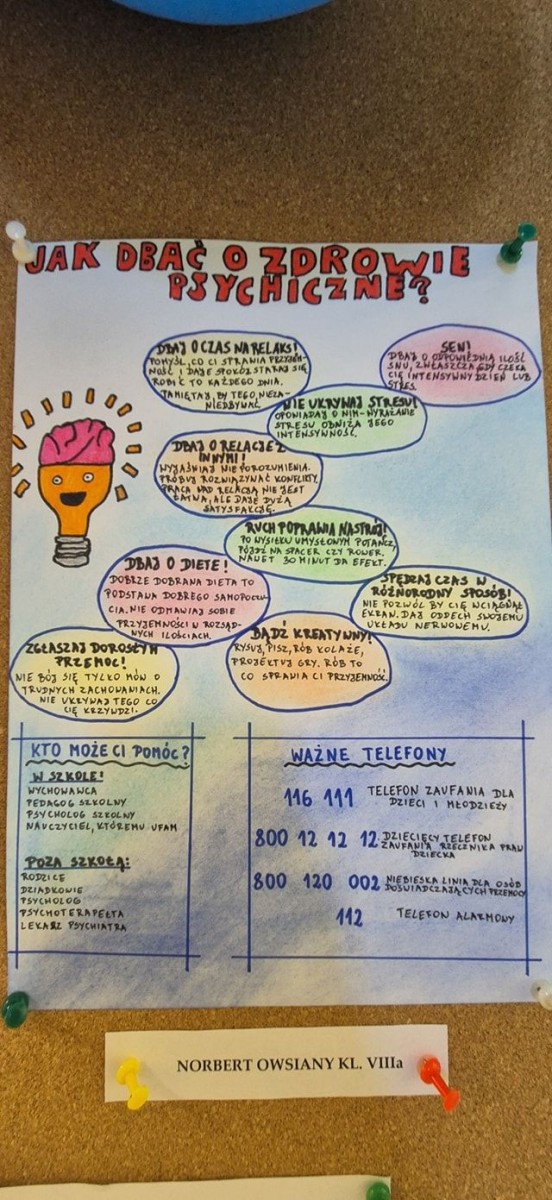 JAK DBAĆ O ZDROWIE
PSYCHICZNE?
DBAJ O CZAS NA RELAKS!
POMYŚL, CO CI SPRAWIA PRZYJEM-
NOŚĆ I DAJE SPOKÓJ. STARAJ SIĘ
ROBIĆ TO KAŻDEGO DNIA.
PAMIĘTAJ, BY TEGO NIEZA-
NIEDBYWAĆ.
SEN!
DBAJ O ODPOWIEDNIĄ ILOŚĆ
SNU, ZWŁASZCZA GDY CZEKA
CIĘ INTENSYWNY DZIEŃ LUB
STRES.
NIE UKRYWAJ STRESU!
OPOWIADAJ O NIM-WYRAŻANIE
STRESU OBNIŻA JEGO
INTENSYWNOŚĆ.
DBAJ O RELACJE Z
INNYMI!
WYJAŚNIAJ NIEPOROZUMIENIA.
PRÓBUJ ROZWIĄZYWAĆ KONFLIKTY.
PRACA NAD RELACJĄ NIE JEST
ŁATWA, ALE DAJE DUŻĄ
SATYSFAKCJĘ.
RUCH POPRAWIA NASTRÓJ!
PO WYSIŁKU UMYSŁOWYM POTAŃCZ,
PÓJDŹ NA SPACER CZY ROWER.
NAWET 30 MINUT DA EFEKT.
DBAJ O DIETE!
DOBRZE DOBRANA DIETA TO
PODSTAWA DOBREGO SAMOPOCZU-
CIA. NIE ODMAWIAJ SOBIE
PRZYJEMNOŚCI W ROZSĄD-
NYCH ILOŚCIACH.
SPĘDZAJ CZAS W
RÓŻNORODNY SPOSÓB!
NIE POZWÓL BY CIĘ WCIĄGNĄŁ
EKRAN. DAJ ODDECH SWOJEMU
UKŁADU NERWOWEMU.
BĄDŹ KREATYWNY!
RYSUJ, PISZ, RÓB KOLAŻE,
PROJEKTUJ GRY. RÓB TO
CO SPRAWIA CI PRZYJEMNOŚĆ.
ZGŁASZAJ DOROSŁYM
PRZEMOC!
NIE BÓJ SIĘ TYLKO MÓW O
TRUDNYCH ZACHOWANIACH.
NIE UKRYWAJ TEGO CO
CIĘ KRZYWDZI.
KTO MOŻE CI POMÓC?
W SZKOLE!
WYCHOWAWCA
PEDAGOG SZKOLNY
PSYCHOLOG SZKOLNY
NAUCZYCIEL, KTÓREMU UFAM
POZA SZKOŁĄ:
RODZICE
DZIADKOWIE
PSYCHOLOG
PSYCHOTERAPEŁTA
LEKARZ PSYCHIATRA
WAŻNE TELEFONY
116 111 TELEFON ZAUFANIA DLA
DZIECI I MŁODZIEŻY
800 12 12 12 DZIECIĘCY TELEFON
ZAUFANIA RZECZNIKA PRAW
DZIECKA
800 120 002 NIEBIESKA LINIA DLA OSÓB
DOŚWIADCZAJĄCYCH PRZEMOCY
112 TELEFON ALARMOWY
NORBERT OWSIANY KL. VIIIa